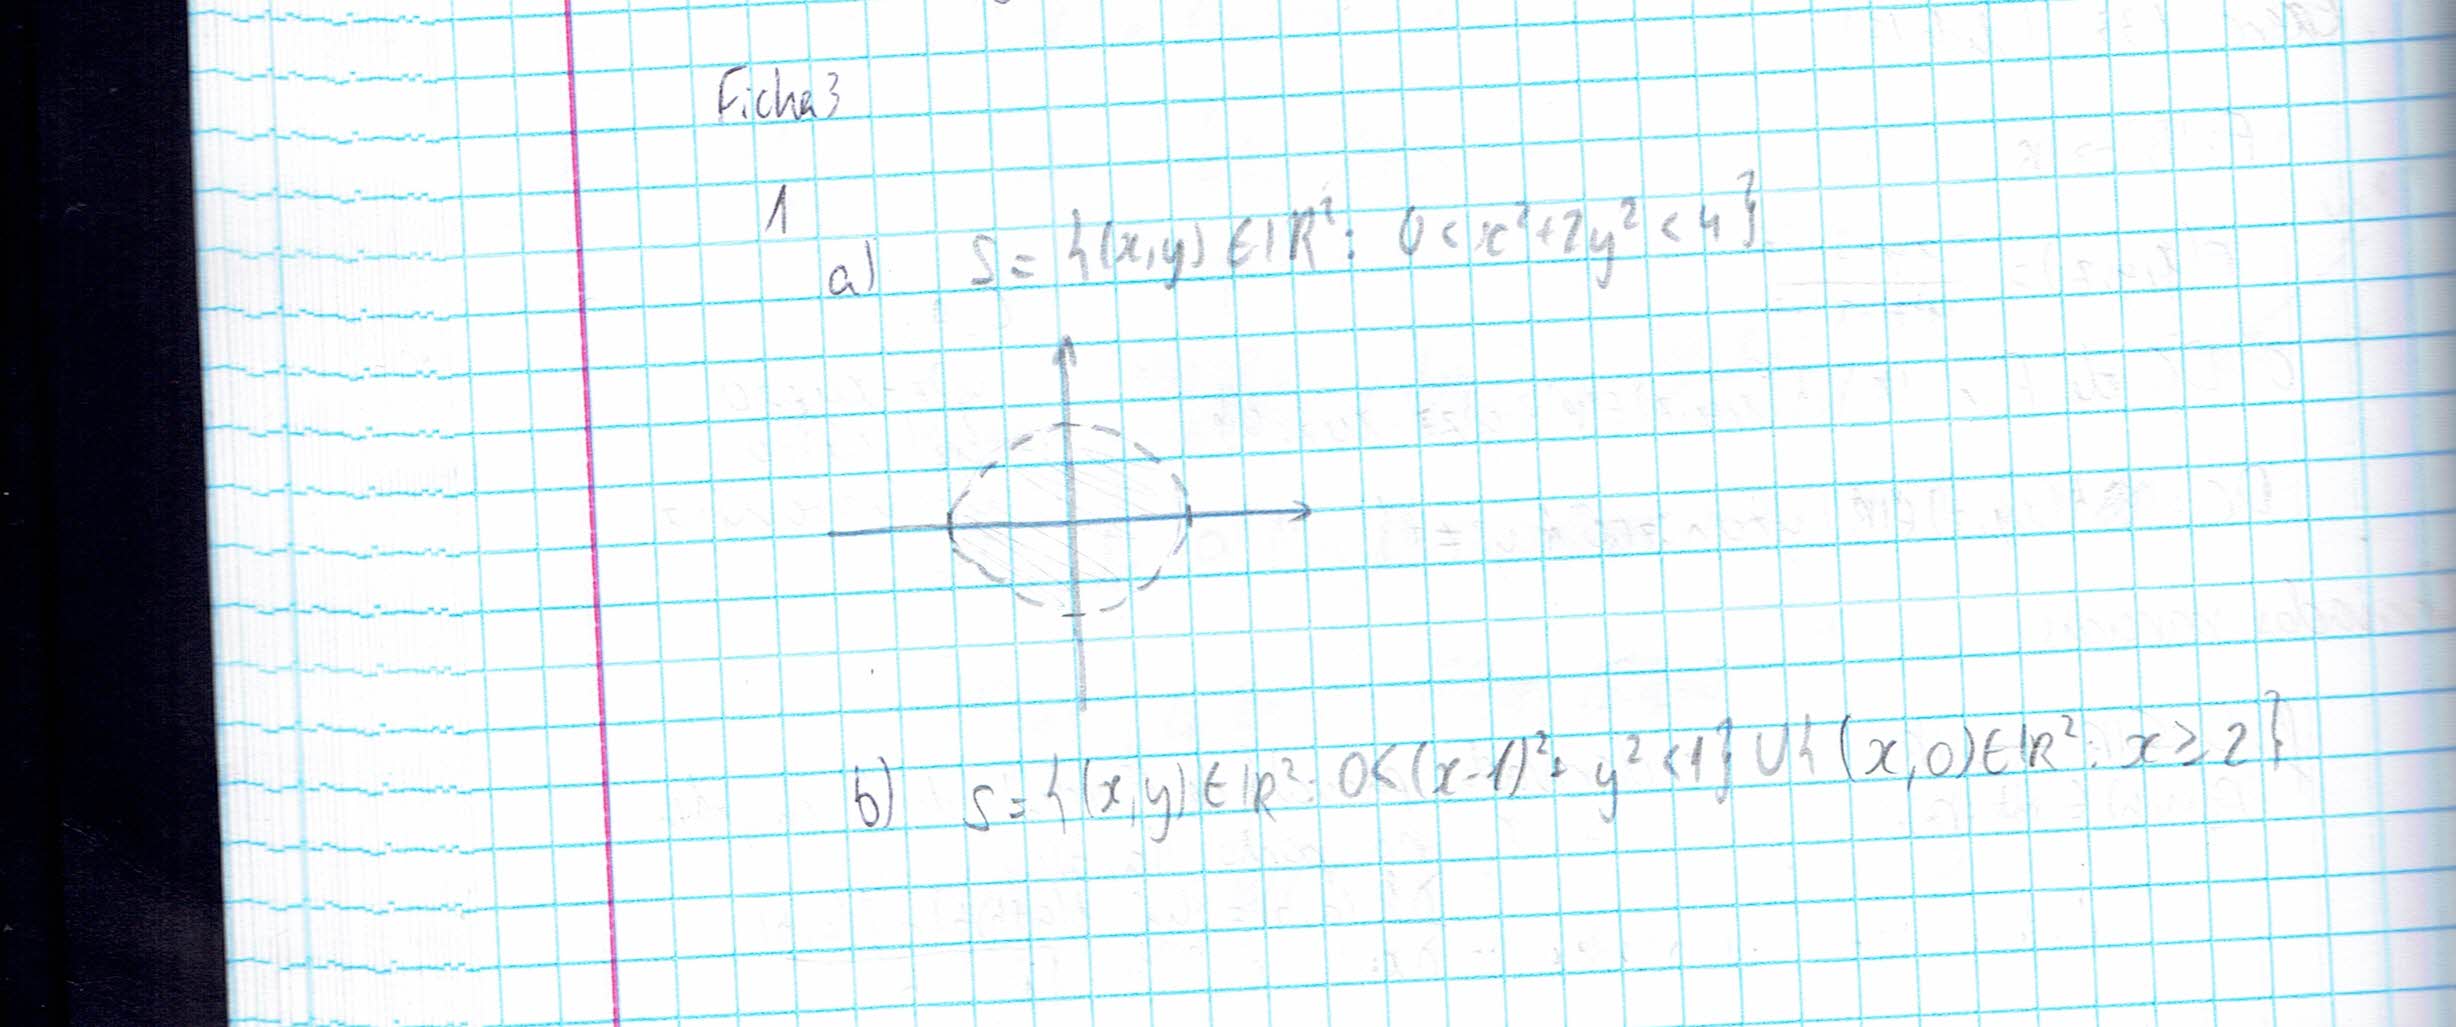 Ficha3
1
a) S = {(x,y) ∈ ℝ²: 0 < x²+2y² < 4}
b) S = {(x,y) ∈ ℝ²: 0<(x-1)²+ y² <1} ∪ {(x,0) ∈ ℝ²: x ≥ 2}